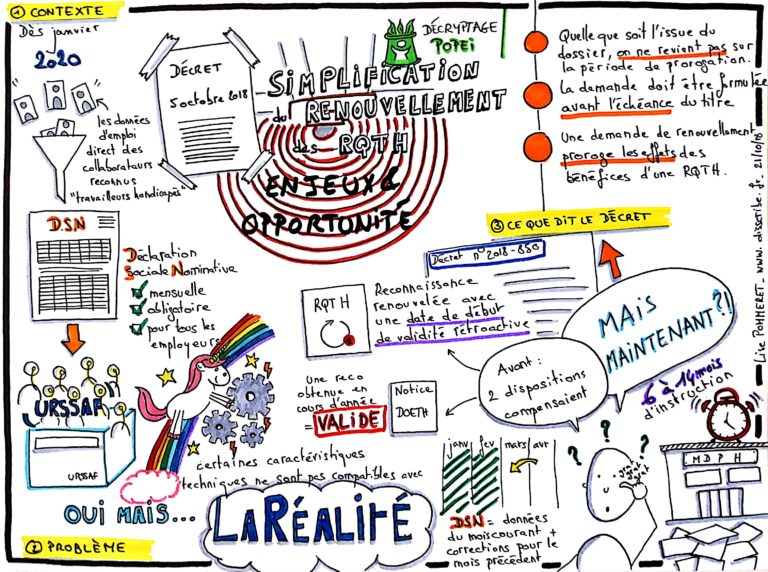 ① CONTEXTE
Dès janvier
2020
les données
d'emploi
direct des
collaborateurs
reconnus
"travailleurs handicapés"
DÉCRET
5 octobre 2018
DÉCRYPTAGE
POPEi
SIMPLIFICATION
du RENOUVELLEMENT
des RQTH
ENJEUX &
OPPORTUNITÉ
D.S.N
Déclaration
Sociale Nominative
mensuelle
obligatoire
pour tous les
employeurs
URSSAF
URSSAF
certaines caractéristiques
techniques ne sont pas compatibles avec
OUI MAIS...
LA RÉALITÉ
② PROBLÈME
RQTH
Reconnaissance
renouvelée avec
une date de début
de validité rétroactive
Une reco
obtenue en
cours d'année
= VALIDE
Notice
DOETH
Avant :
2 dispositions
compensaient
MAIS
MAINTENANT ?!
janv fev mars avr
DSN = données
du mois courant +
corrections pour le
mois précédent
? ? ?
6 à 14 mois
d'instruction
MDPH
③ CE QUE DIT LE DÉCRET
Décret n° 2018-850
Quelle que soit l'issue du
dossier, on ne revient pas sur
la période de prorogation.
La demande doit être formulée
avant l'échéance du titre
Une demande de renouvellement
proroge les effets des
bénéfices d'une RQTH.
Lise POMMERET _ www. disscribe. fr. 21/10/18